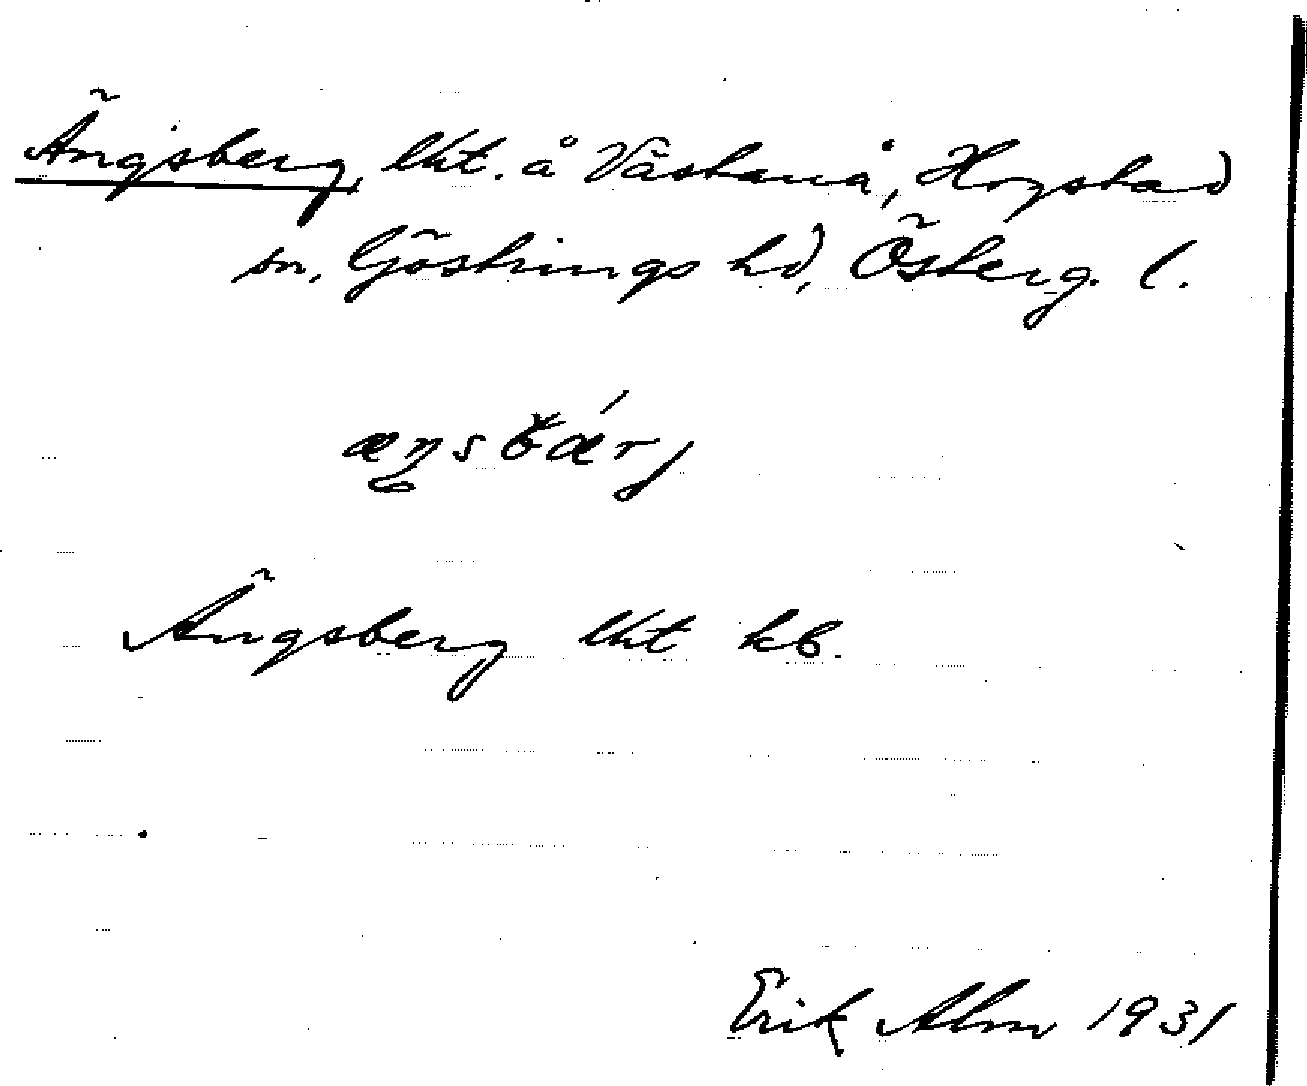 Ängsberg, lht. å Västanå, Hogstad
sn, Göstrings hd, Österg. l.
æŋsbærj
Ängsberg lht kb.
Erik Alm 1931